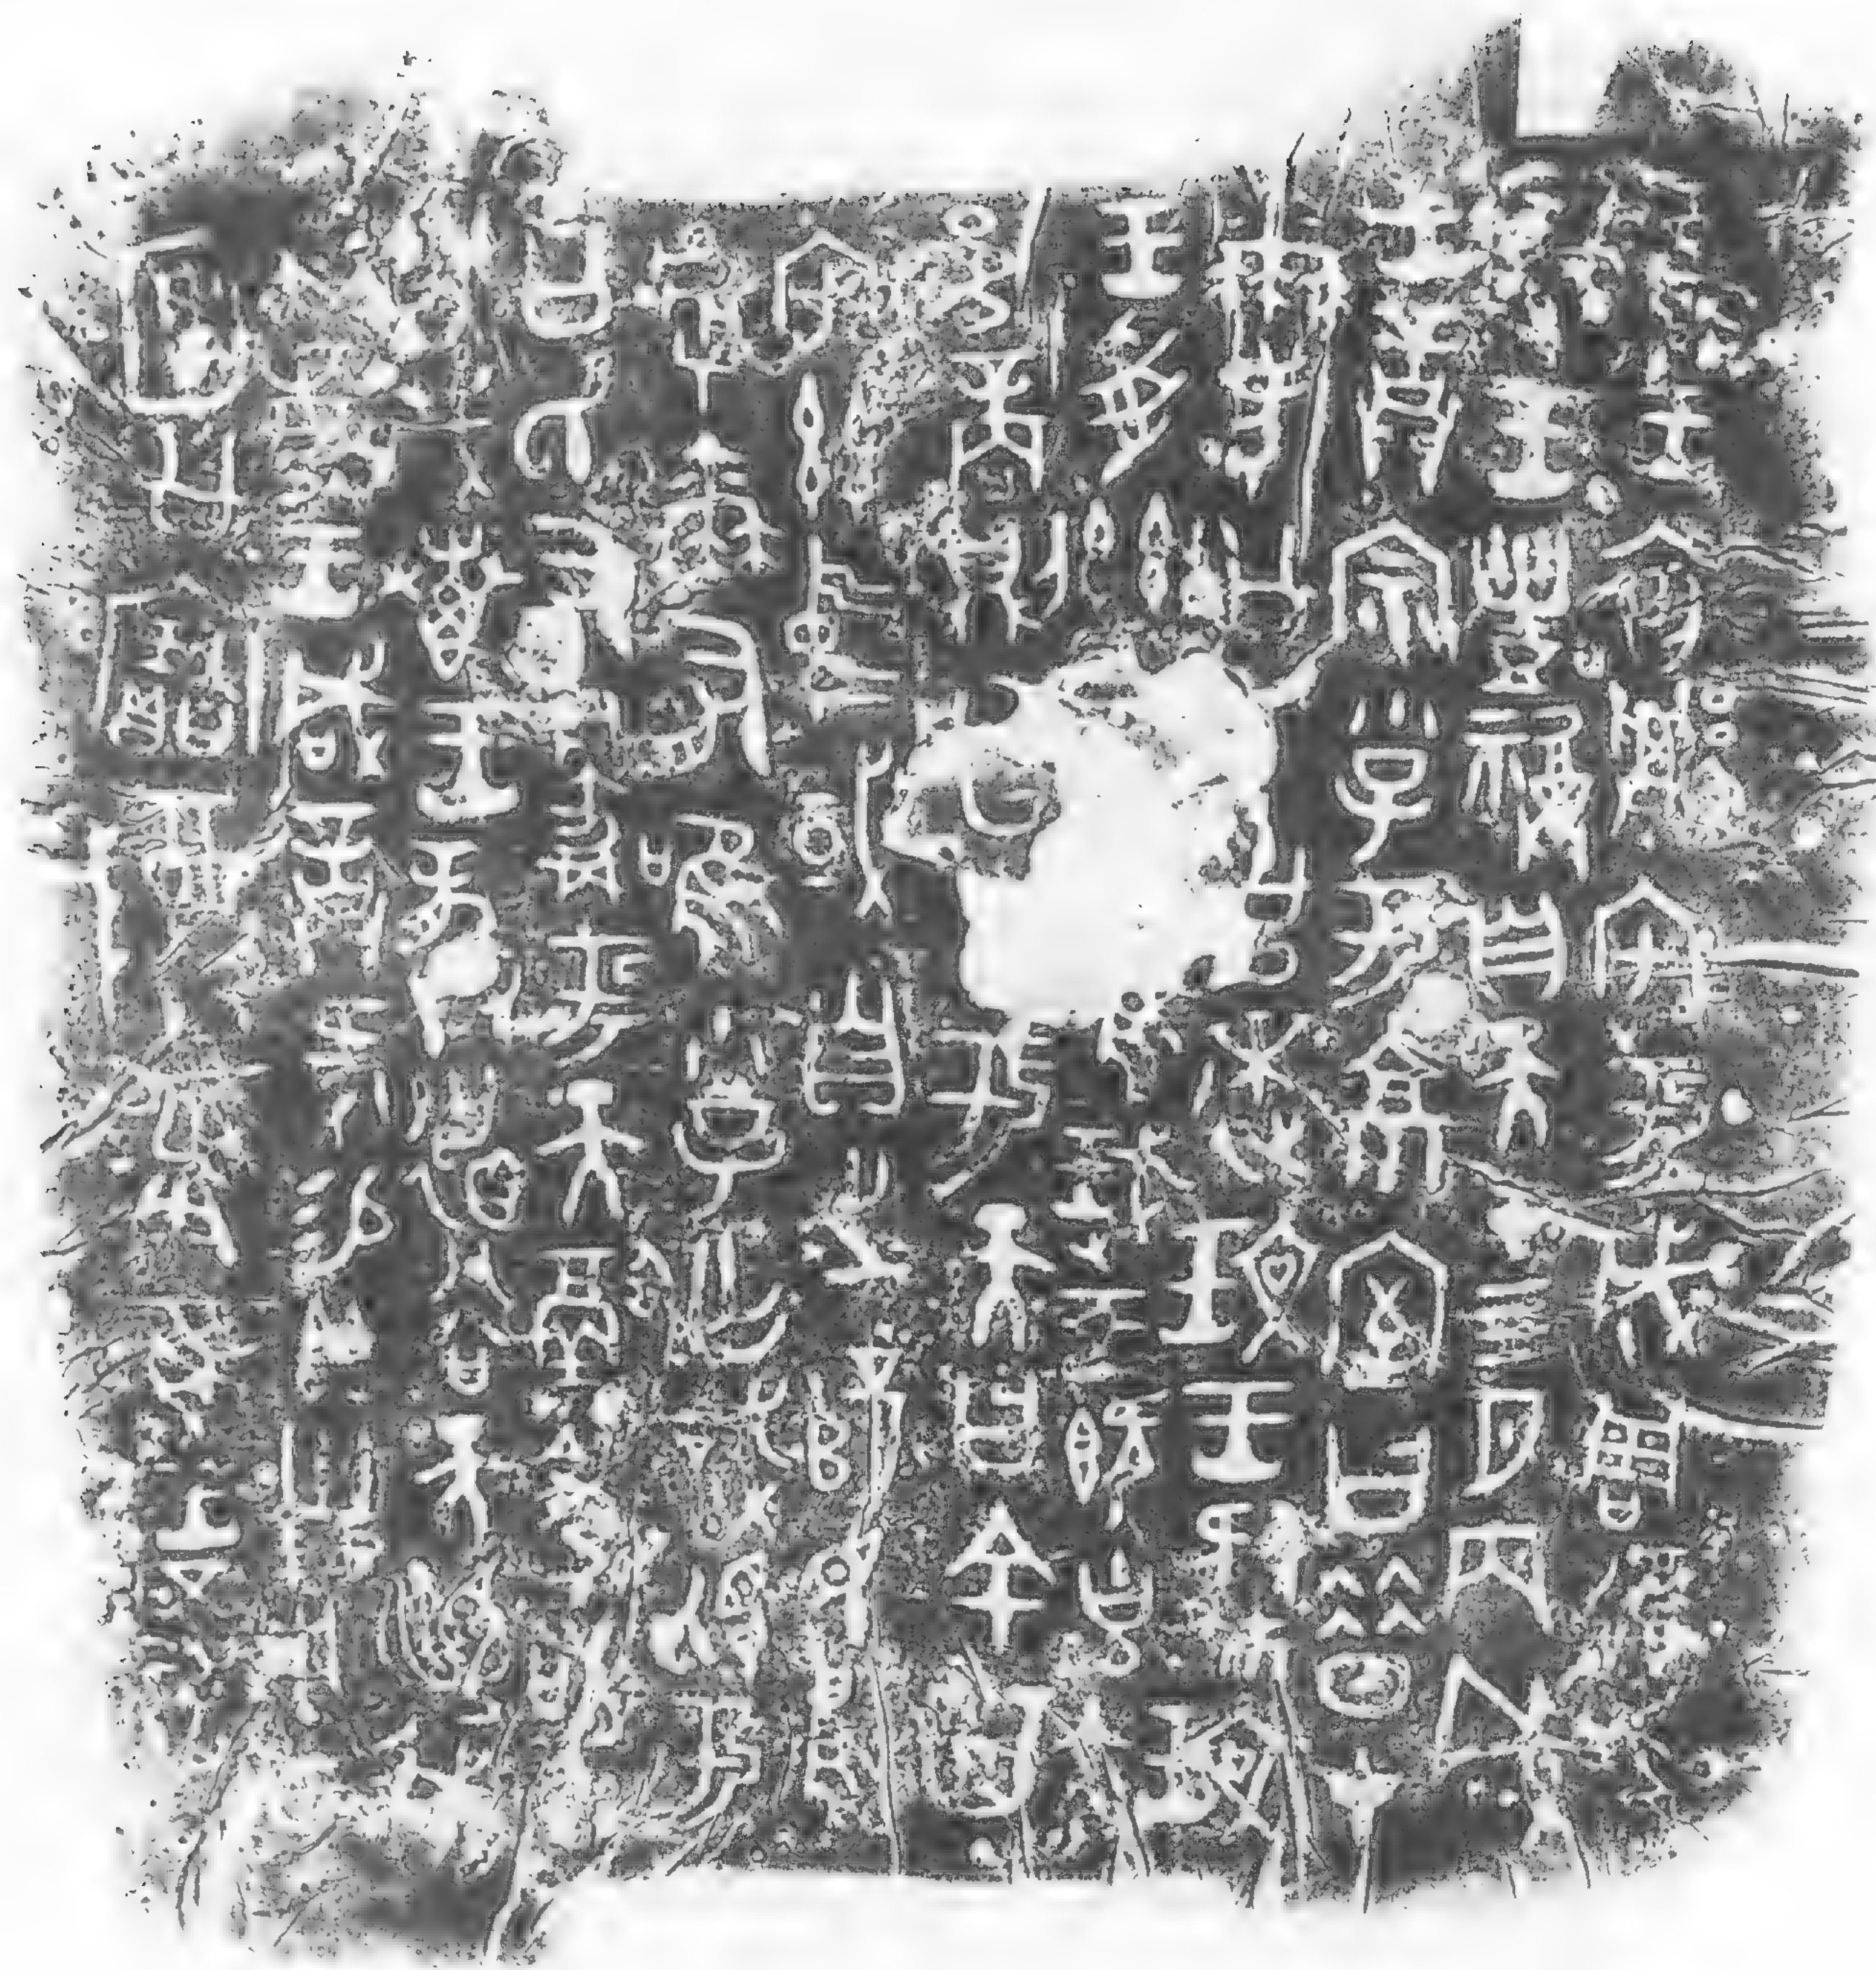 隹王初𨟻宅于成周復爯
珷王豐祼自天才四月丙戌
王誥宗小子于京室曰昔才
爾考公氏克逨玟王肆玟
王受茲大令隹珷王既克大
邑商則廷告于天曰余其
宅茲中或自之辥民烏
虖爾有唯小子亡戠視于
公氏有爵于天徹令敬
享哉叀王龏德谷天順我
不每王咸誥何易貝卅朋用乍
公寶尊彝隹王五祀